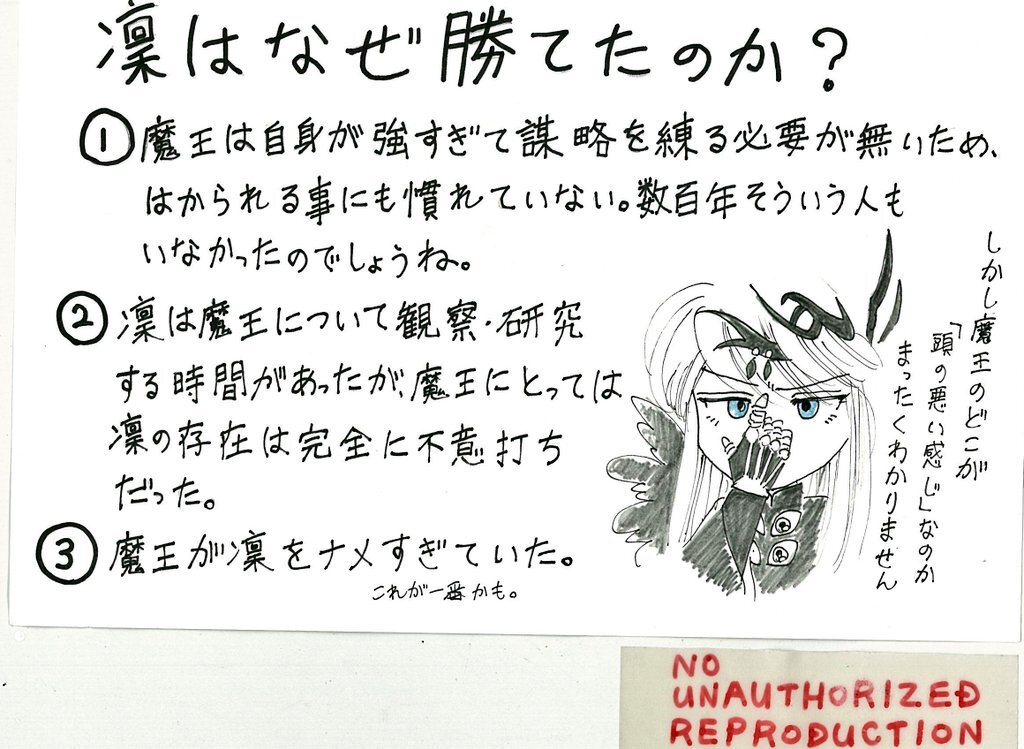 凛はなぜ勝てたのか？
① 魔王は自身が強すぎて謀略を練る必要が無いため、
はかられる事にも慣れていない。数百年そういう人も
いなかったのでしょうね。
② 凛は魔王について観察・研究
する時間があったが、魔王にとっては
凛の存在は完全に不意打ち
だった。
③ 魔王が凛をナメすぎていた。
これが一番かも。
しかし魔王のどこが
「頭の悪い感じ」なのか
まったくわかりません
NO
UNAUTHORIZED
REPRODUCTION